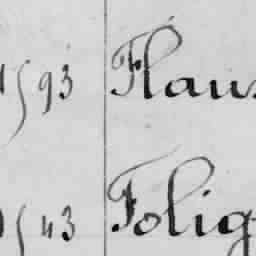 1593 Flaus
1543 Folig